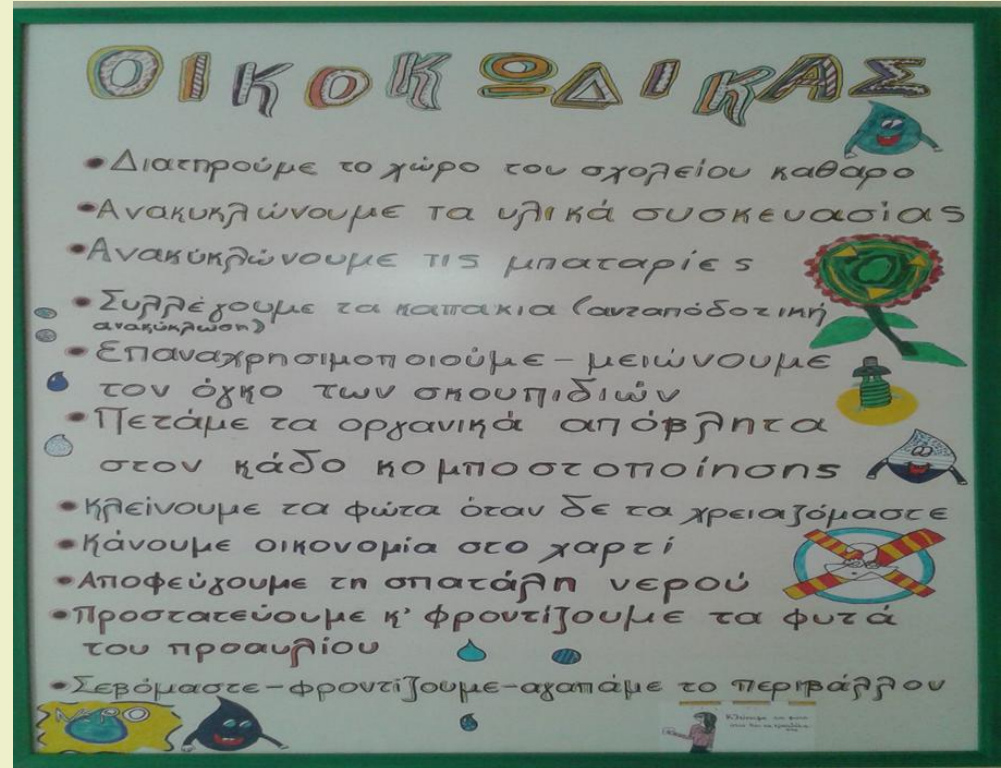 ΟΙΚΟΚΩΔΙΚΑΣ
•Διατηρούμε το χώρο του σχολείου καθαρο
•Ανακυκλώνουμε τα υλικά συσκευασίας
•Ανακύκλώνουμε τις μπαταρίες
•Συλλέγουμε τα καπακια (ανταπόδοτική
ανακύκλωση)
•Επαναχρησιμοποιούμε - μειώνουμε
τον όγκο των σκουπιδιών
•Πετάμε τα οργανικά απόβλητα
στον κάδο κομποστοποίησης
•Κλείνουμε τα φώτα όταν δε τα χρειαζόμαστε
•Κάνουμε οικονομία στο χαρτί
•Αποφεύγουμε τη σπατάλη νερού
•Προστατεύουμε κ' φροντίζουμε τα φυτά
του προαυλίου
•Σεβόμαστε-φροντίζουμε-αγαπάμε το περιβάλλον
ΝΕΡΟ
Κλείνουμε τα φώτα